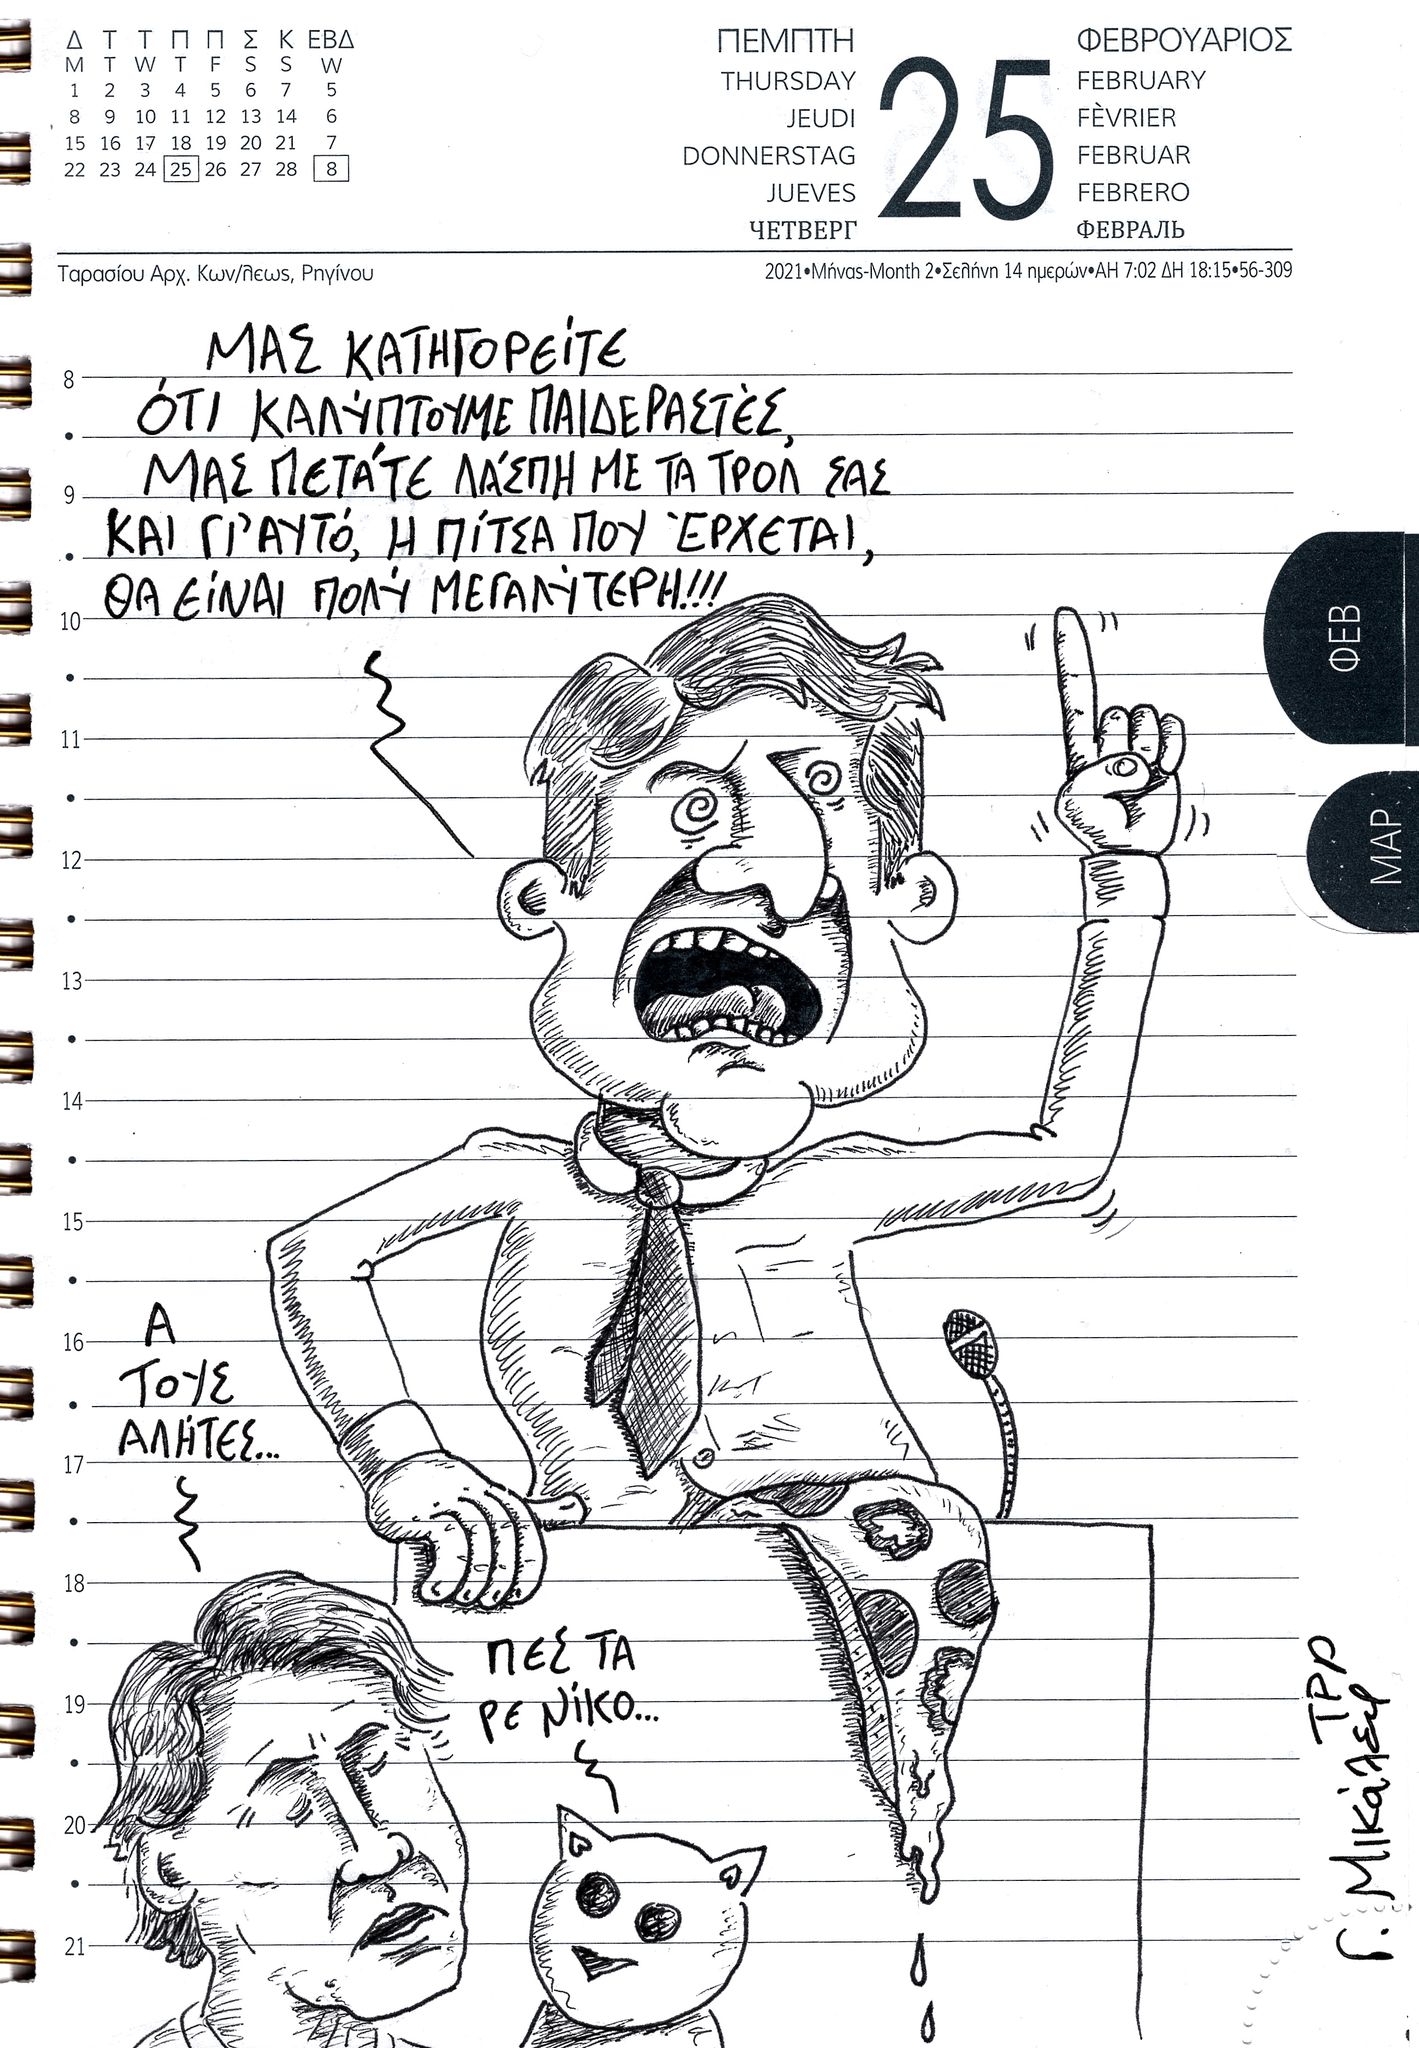 Δ Τ Τ Π Π Σ Κ ΕΒΔ
M T W T F S S W
1 2 3 4 5 6 7 5
8 9 10 11 12 13 14 6
15 16 17 18 19 20 21 7
22 23 24 25 26 27 28 8
ΠΕΜΠΤΗ
THURSDAY
JEUDI
DONNERSTAG
JUEVES
ЧЕТВЕРГ
25
ΦΕΒΡΟΥΑΡΙΟΣ
FEBRUARY
FÈVRIER
FEBRUAR
FEBRERO
ФЕВРАЛЬ
Ταρασίου Αρχ. Κων/λεως, Ρηγίνου
2021•Μήνας-Month 2•Σελήνη 14 ημερών•ΑΗ 7:02 ΔΗ 18:15•56-309
ΜΑΣ ΚΑΤΗΓΟΡΕΊΤΕ
ΌΤΙ ΚΑΛΎΠΤΟΥΜΕ ΠΑΙΔΕΡΑΣΤΈΣ,
ΜΑΣ ΠΕΤΆΤΕ ΛΆΣΠΗ ΜΕ ΤΑ ΤΡΟΛ ΣΑΣ
ΚΑΙ ΓΙ'ΑΥΤΌ, Η ΠΊΤΣΑ ΠΟΥ ΈΡΧΕΤΑΙ,
ΘΑ ΕΊΝΑΙ ΠΟΛΎ ΜΕΓΑΛΎΤΕΡΗ!!!
8
9
10
11
12
13
14
15
16
17
18
19
20
21
ΦΕΒ
ΜΑΡ
Α
ΤΟΥΣ
ΑΛΉΤΕΣ...
ΠΕΣ ΤΑ
ΡΕ ΝΊΚΟ...